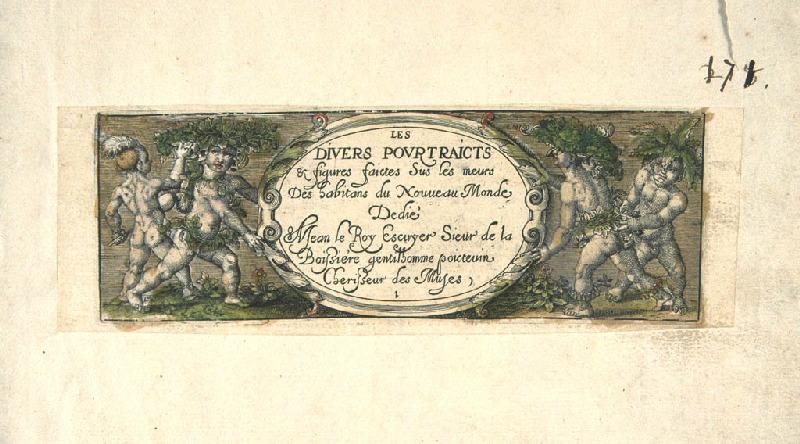 171.
LES
DIVERS POVRTRAICTS
& figures faictes Sus les meurs
Des habitans du Nouueau Monde,
Dedié
A Jean le Roy Escuyer Sieur de la
Boissiére gentilhomme poicteuin
Cherisseur des Muses,
1